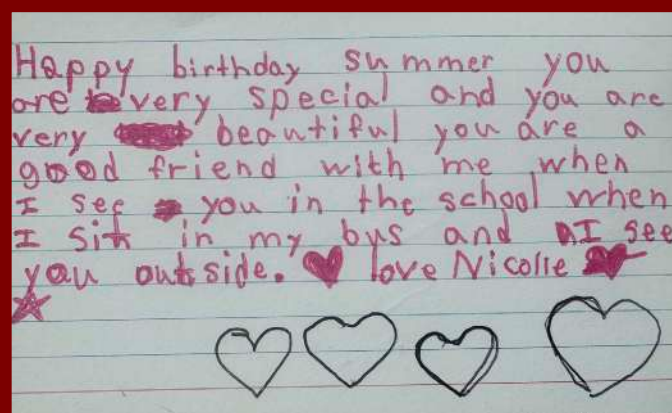 Happy birthday summer you
are very special and you are
very beautiful you are a
good friend with me when
I see you in the school when
I sit in my bus and I see
you outside. love Nicolle